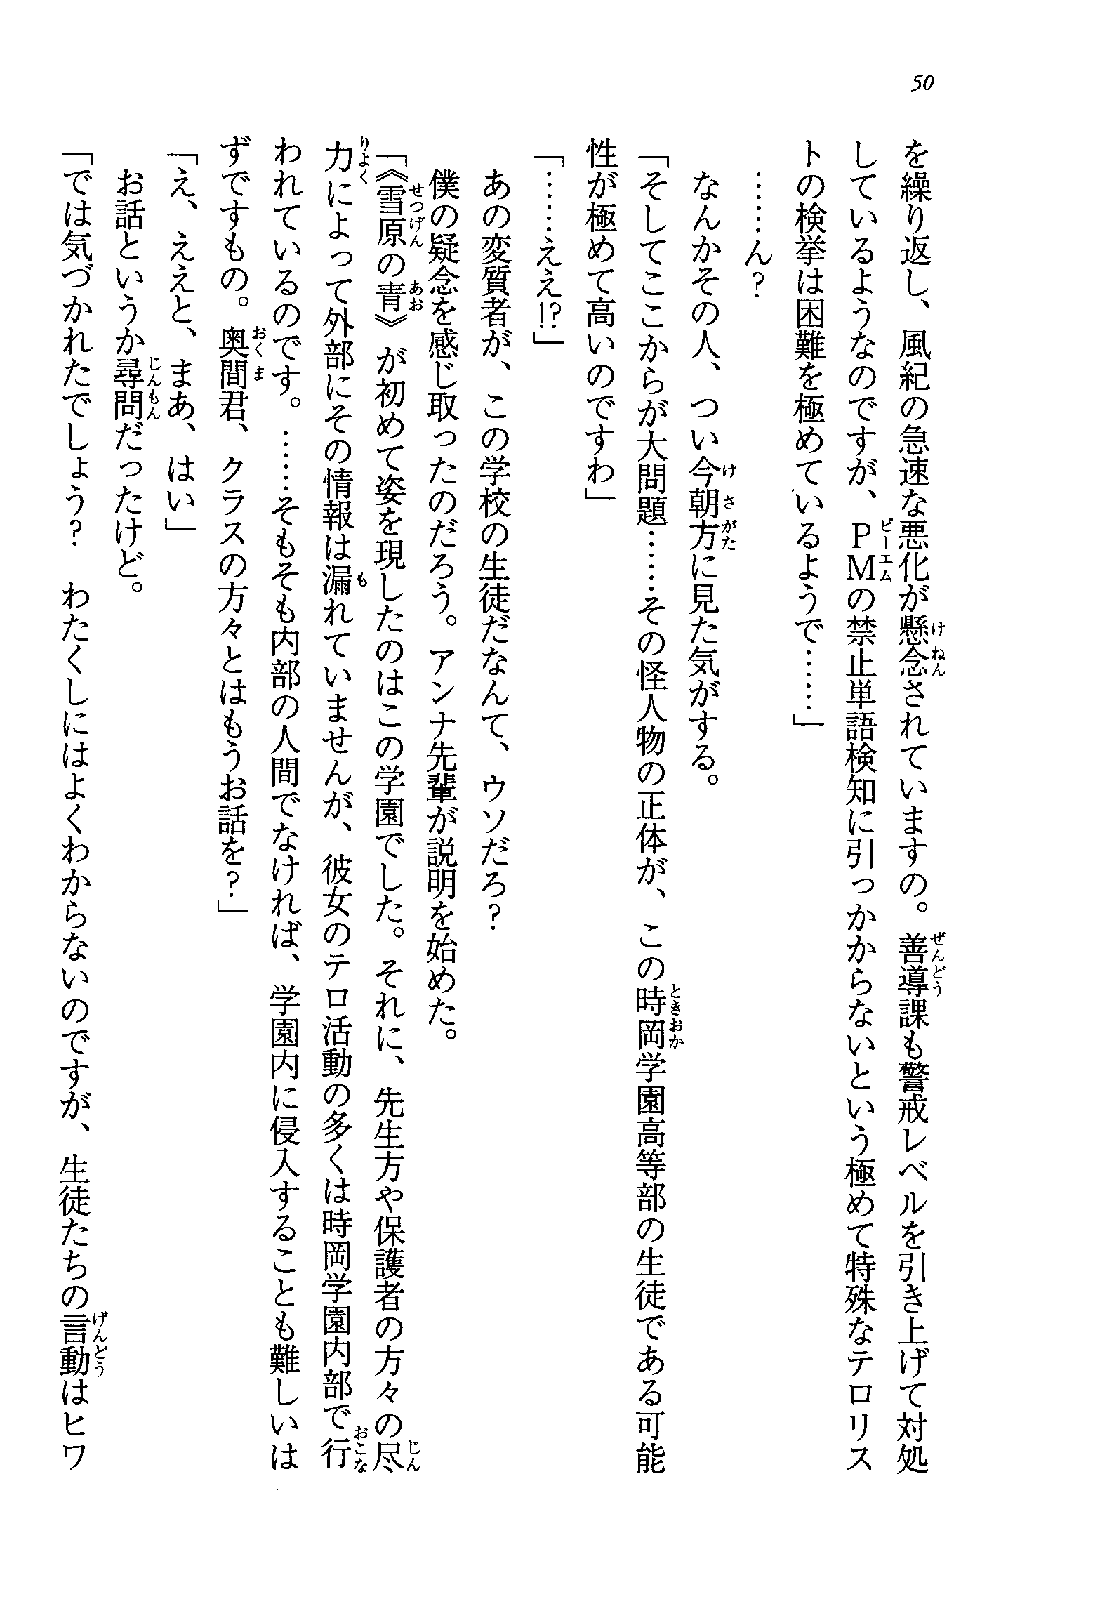 50
を繰り返し、風紀の急速な悪化が懸念されていますの。善導課も警戒レベルを引き上げて対処
しているようなのですが、PMの禁止単語検知に引っかからないという極めて特殊なテロリス
トの検挙は困難を極めているようで……」
……ん？
なんかその人、つい今朝方に見た気がする。
「そしてここからが大問題……その怪人物の正体が、この時岡学園高等部の生徒である可能
性が極めて高いのですわ」
「……ええ!?」
あの変質者が、この学校の生徒だなんて、ウソだろ？
僕の疑念を感じ取ったのだろう。アンナ先輩が説明を始めた。
「《雪原の青》が初めて姿を現したのはこの学園でした。それに、先生方や保護者の方々の尽
力によって外部にその情報は漏れていませんが、彼女のテロ活動の多くは時岡学園内部で行
われているのです。……そもそも内部の人間でなければ、学園内に侵入することも難しいは
ずですもの。奥間君、クラスの方々とはもうお話を？」
「え、ええと、まあ、はい」
お話というか尋問だったけど。
「では気づかれたでしょう？　わたくしにはよくわからないのですが、生徒たちの言動はヒワ